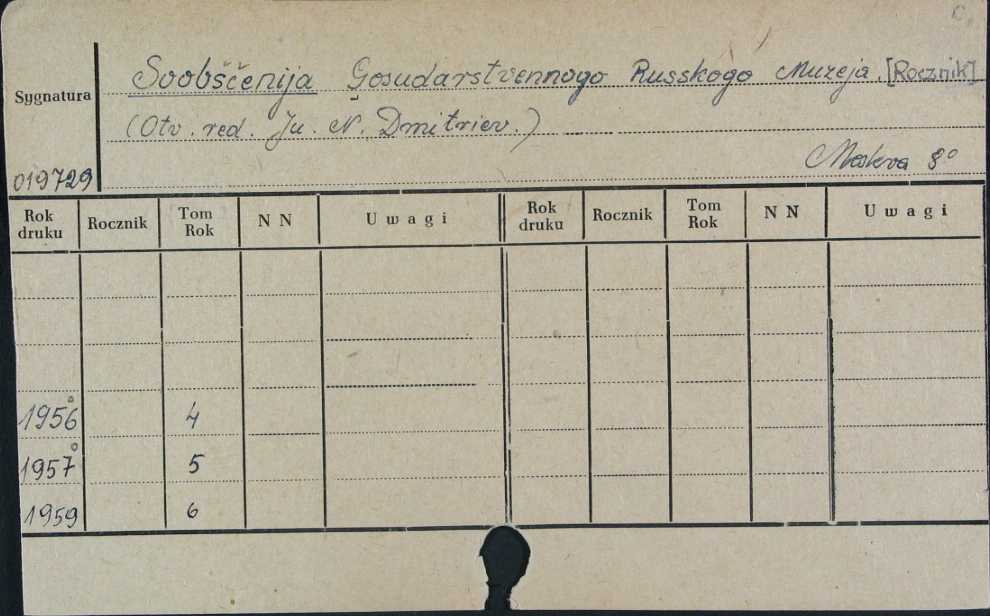 C.
Soobščenija Gosudarstvennogo Russkogo Muzeja. [Rocznik]
Sygnatura
(Otv. red. Ju. N. Dmitriev.)
Moskva 8°
019729
Rok druku Rocznik Tom Rok N N Uwagi Rok druku Rocznik Tom Rok N N Uwagi
1956° 4
1957° 5
1959 6